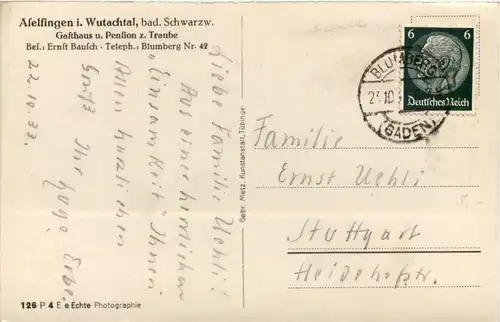 Aselfingen i. Wutachtal, bad. Schwarzw.
Gasthaus u. Pension z. Traube
Bes.: Ernst Bausch - Teleph.: Blumberg Nr. 42
Liebe Familie Uehli!
Aus einer herrlichen
"Einsamkeit" Ihnen
Allen herzlichen
Gruß Ihr
Hugo Erbe.
22.10.33.
Gebr. Metz, Kunstanstalt, Tübingen
6 6
Deutsches Reich
BLUMBERG
23.10.
(BADEN)
Familie
Ernst Uehli
Stuttgart
Heidehofstr.
126 P 4 E e Echte Photographie